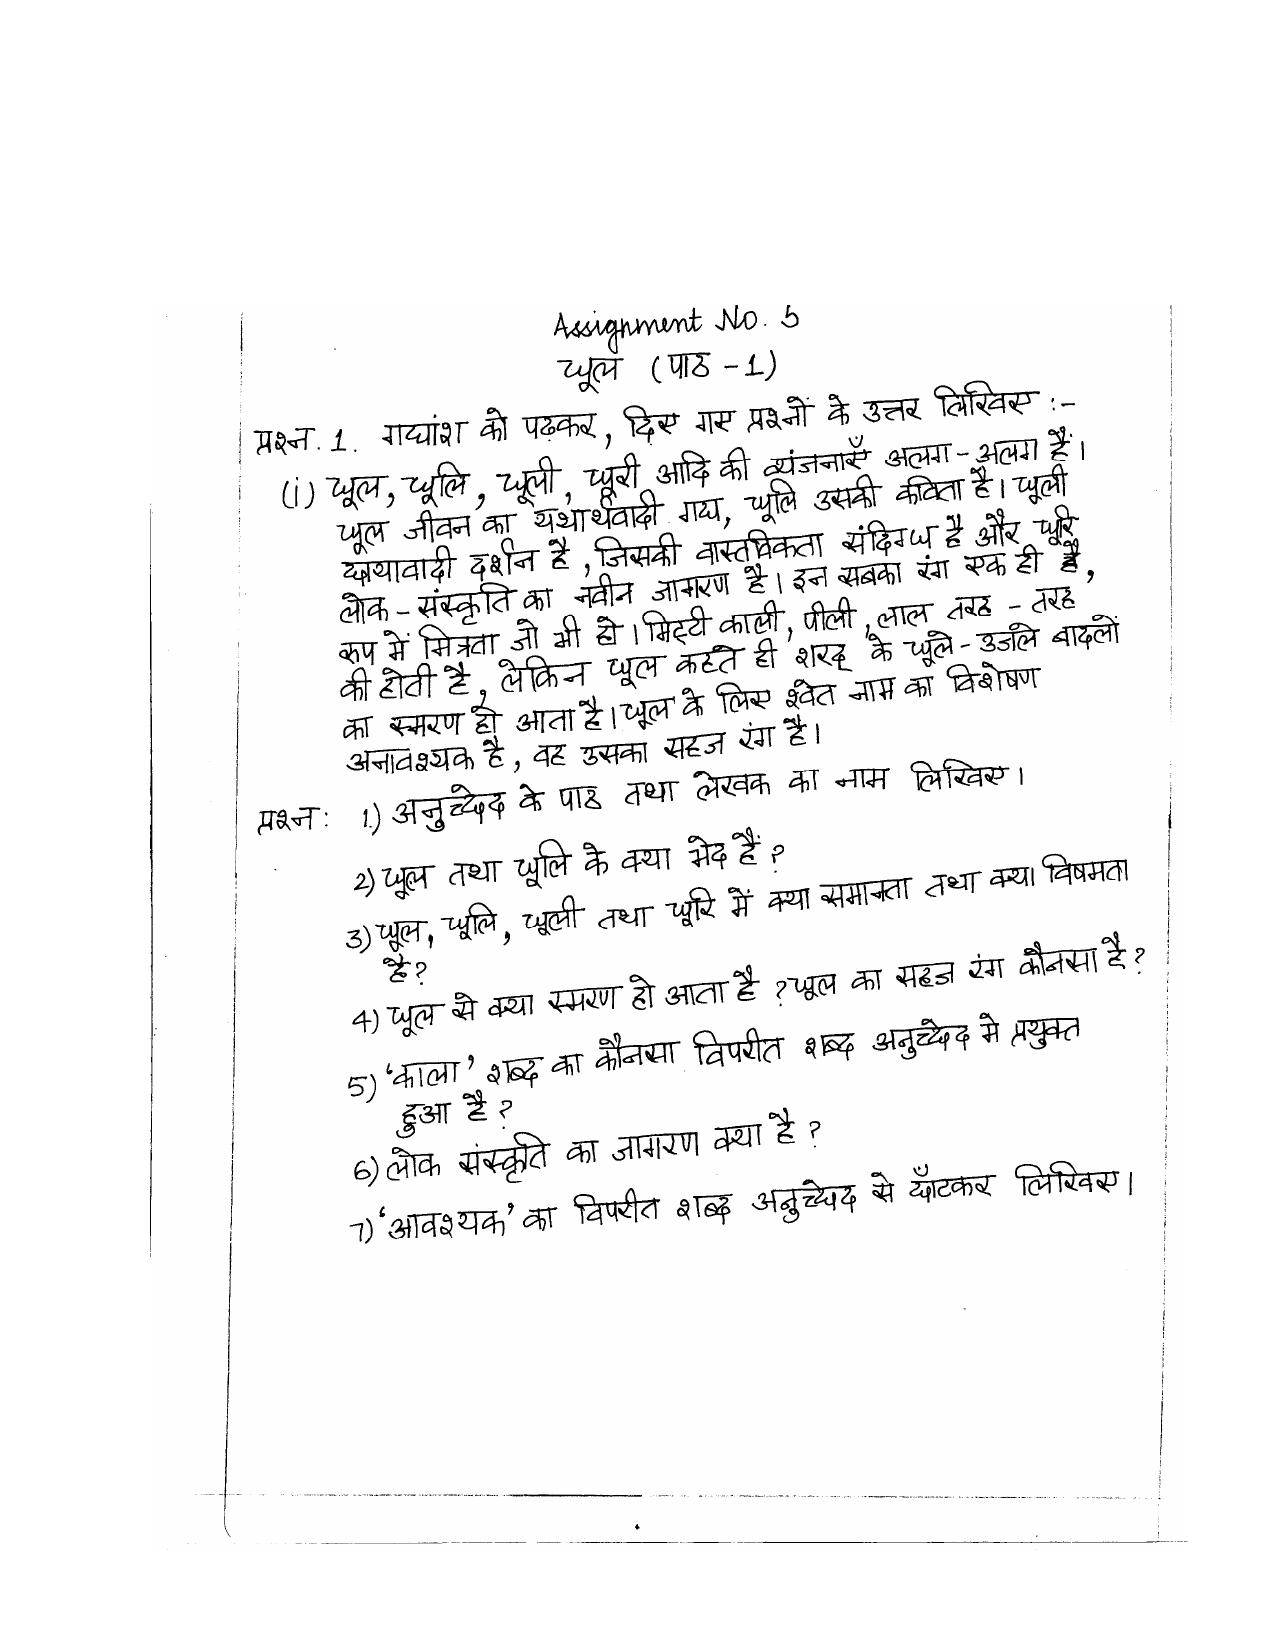 Assignment No. 5
धूल (पाठ - 1)
प्रश्न. 1. गद्यांश को पढ़कर, दिए गए प्रश्नों के उत्तर लिखिए :-
(i) धूल, धूलि, धूली, धूरी आदि की व्यंजनाएँ अलग - अलग हैं।
धूल जीवन का यथार्थवादी गद्य, धूलि उसकी कविता है। धूली
छायावादी दर्शन है, जिसकी वास्तविकता संदिग्ध है और धूरि
लोक - संस्कृति का नवीन जागरण है। इन सबका रंग एक ही है,
रूप में भिन्नता जो भी हो। मिट्टी काली, पीली, लाल तरह - तरह
की होती है, लेकिन धूल कहते ही शरद् के धूले - उजले बादलों
का स्मरण हो आता है। धूल के लिए श्वेत नाम का विशेषण
अनावश्यक है, वह उसका सहज रंग है।
प्रश्न: 1.) अनुच्छेद के पाठ तथा लेखक का नाम लिखिए।
2) धूल तथा धूलि के क्या भेद हैं ?
3) धूल, धूलि, धूली तथा धूरि में क्या समानता तथा क्या विषमता
है?
4) धूल से क्या स्मरण हो आता है ? धूल का सहज रंग कौनसा है ?
5) 'काला' शब्द का कौनसा विपरीत शब्द अनुच्छेद मे प्रयुक्त
हुआ है ?
6) लोक संस्कृति का जागरण क्या है ?
7) 'आवश्यक' का विपरीत शब्द अनुच्छेद से छाँटकर लिखिए।